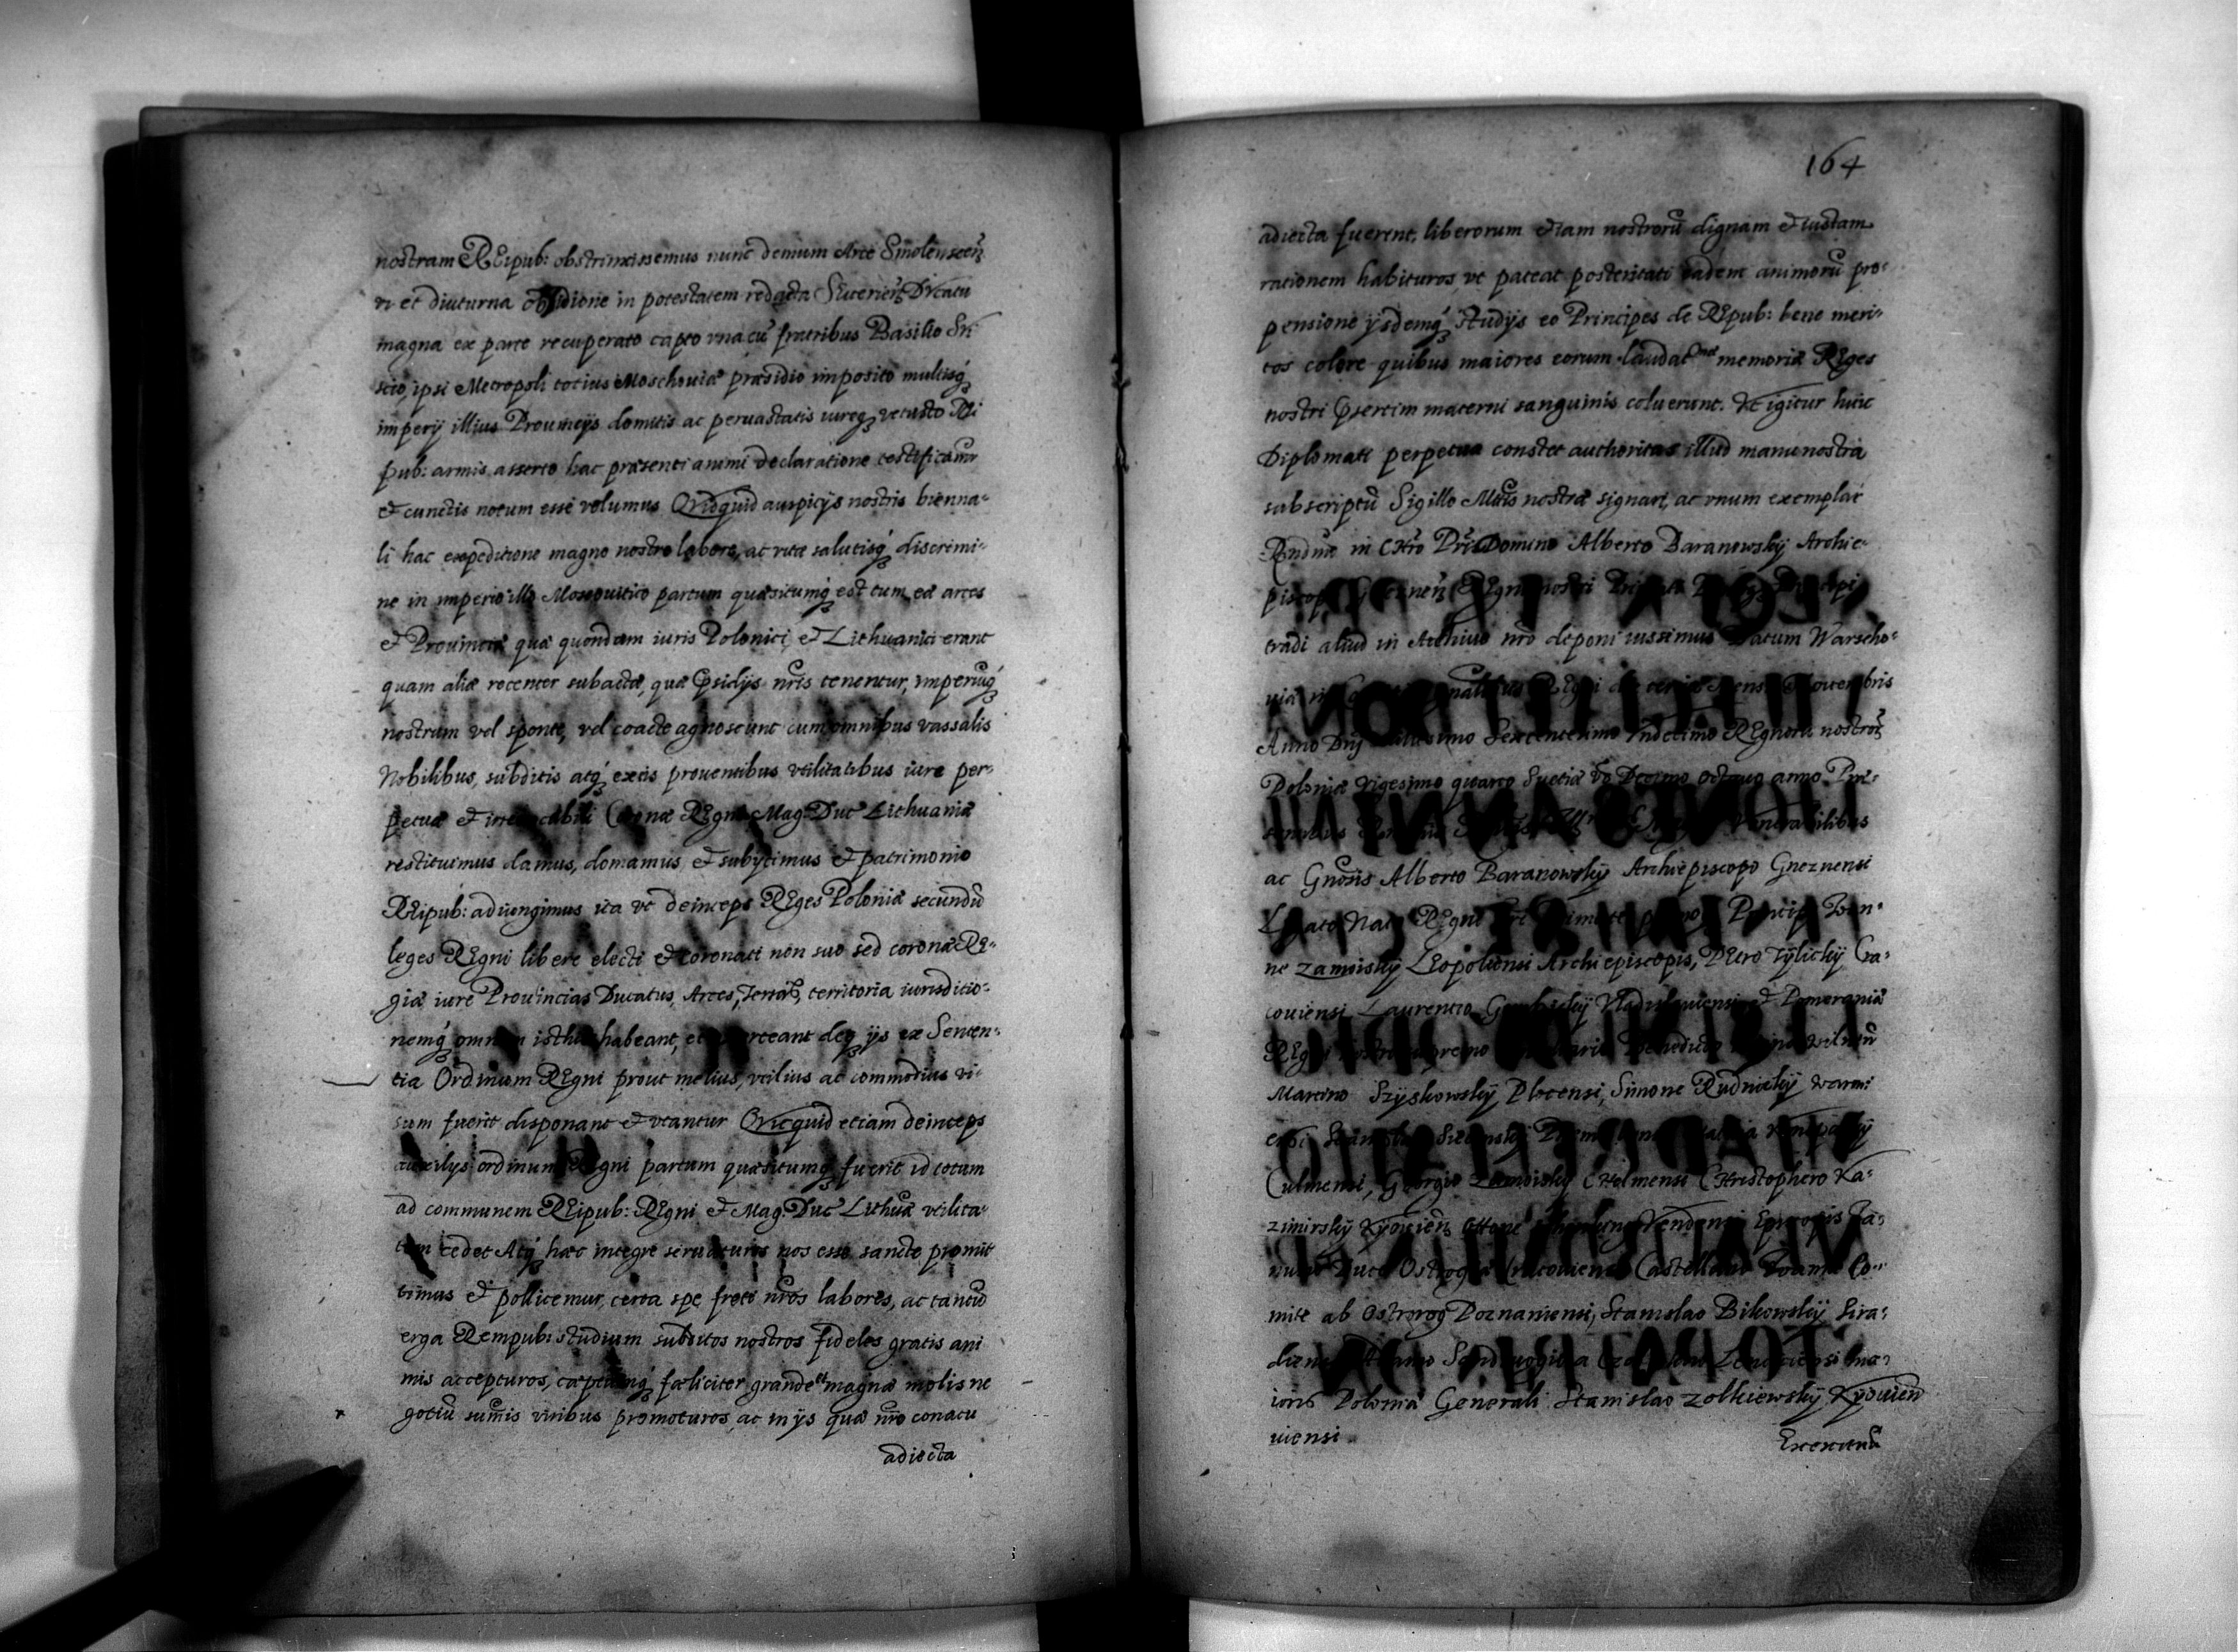 nostram REipub: obstrinxissemus nunc demum Arce Smolenscen̄
vi et diuturna obsidione in potestatem redacta Seuerien̄ Dũcatu
magna ex parte recuperato capto vna cũ fratribus Basilio Sũi
scio, ipsi Metropoli totius Moschouiæ præsidio imposito multisq́
imperij illius Prouincijs domitis ac peruastatis iureq́ vetusto REi
pub: armis asserto hac præsenti animi declaratione testificamr
et cunctis notum esse volumus Quidquid auspicijs nostris bienna-
li hac expeditione magno nostro labore, ac vitæ salutisq́ discrimi-
ne in imperio illo Mosquitico partum quæsitumq́ est tum eæ arces
et Prouinciæ quæ quondam iuris Polonici, et Lithuanici erant
quam aliæ recenter subactæ, quæ Psidijs nris tenentur, imperiũq́
nostrum vel sponte, vel coacte agnoscunt cum omnibus vassalis
Nobilibus, subditis atq́ exeis prouentibus vtilitatibus iure per-
petuæ et Coronæ REgni Mag: Duc Lithuaniæ
restituimus damus, donamus, et subijcimus et patrimonio
REipub: adiungimus ita vt deinceps REges Poloniæ secundũ
leges REgni libere electi et coronati non suo sed coronæ RE-
giæ iure Prouincias Ducatus, Arces, Terras, territoria iurisditio-
nemq́ omnem habeant, et deq́ ijs ex Senten-
tia Ordinum REgni prout melius, vtilius ac commodius vi-
sum fuerit disponant et vtantur Quicquid etiam deinceps
auxilijs ordinum REgni partum quæsitumq́ fuerit id totum
ad communem REipub: REgni et Mag: Duc Lithuã vtilita-
tem cedet Atq́ hæc integre seruaturos nos esse sancte promit
timus et pollicemur, certa spe freti nros labores, ac tantũ
erga Rempub: studium subditos nostros fideles gratis ani
mis accepturos, cæptumq́ fæliciter grande et magnæ molis ne
gotiũ sumis viribus promoturos, ac in ijs quæ nro conatu
adiecta
164
adiecta fuerint, liberorum etiam nostrorũ dignam et iustam
rationem habituros, vt pateat posteritati eadem animorũ pro-
pensione ijsdemq́ studijs eo Principes de REpub: bene meri-
tos colere quibus maiores eorum laudatmæ memoriæ REges
nostri Psertim materni sanguinis coluerunt. Vt igitur huic
Diplomati perpetua constet authoritas illud manu nostra
subscriptũ Sigillo Mtis nostræ signari, ac vnum exemplar
Rndme in CHro Pri Domino Alberto Baranowskij Archie-
REgni nostri
tradi aliud in Archiuo nro deponi iussimus Datum Warscho-
REgni die Nouembris
Anno Dnj Sexcentesimo Vndecimo REgnorũ nostror̄
Poloniæ vigesimo quarto Suetiæ vo Decimo octauo anno Præ-
Venerabilibus
ac Gnosis Alberto Baranowskij Archiepiscopo Gneznensi
Legato Nato REgni Principe Ioan-
ne Zamoiskij Leopoliensi Archiepiscopis, PEtro Tÿlickij Cra-
couiensi Laurentio Gembickij Vladislauiensi et Pomeraniæ
REgni
Martino Szyskowskij Plocensi, Simone Rudnickij Warmi
ensi
Culmensi, Georgio Zamoiskij CHelmensi CHristophero Ka-
zimirskij Kyouien̄ Vendensi Episcopis Ia-
nusio Duce Castellano Co-
mite ab Ostrorog Poznaniensi, Stanislao Bikowskij Sira-
diensi ma-
ioris Poloniæ Generali Stanislao Zolkiewskij Kyouien̄
uiensi
Exercituũ